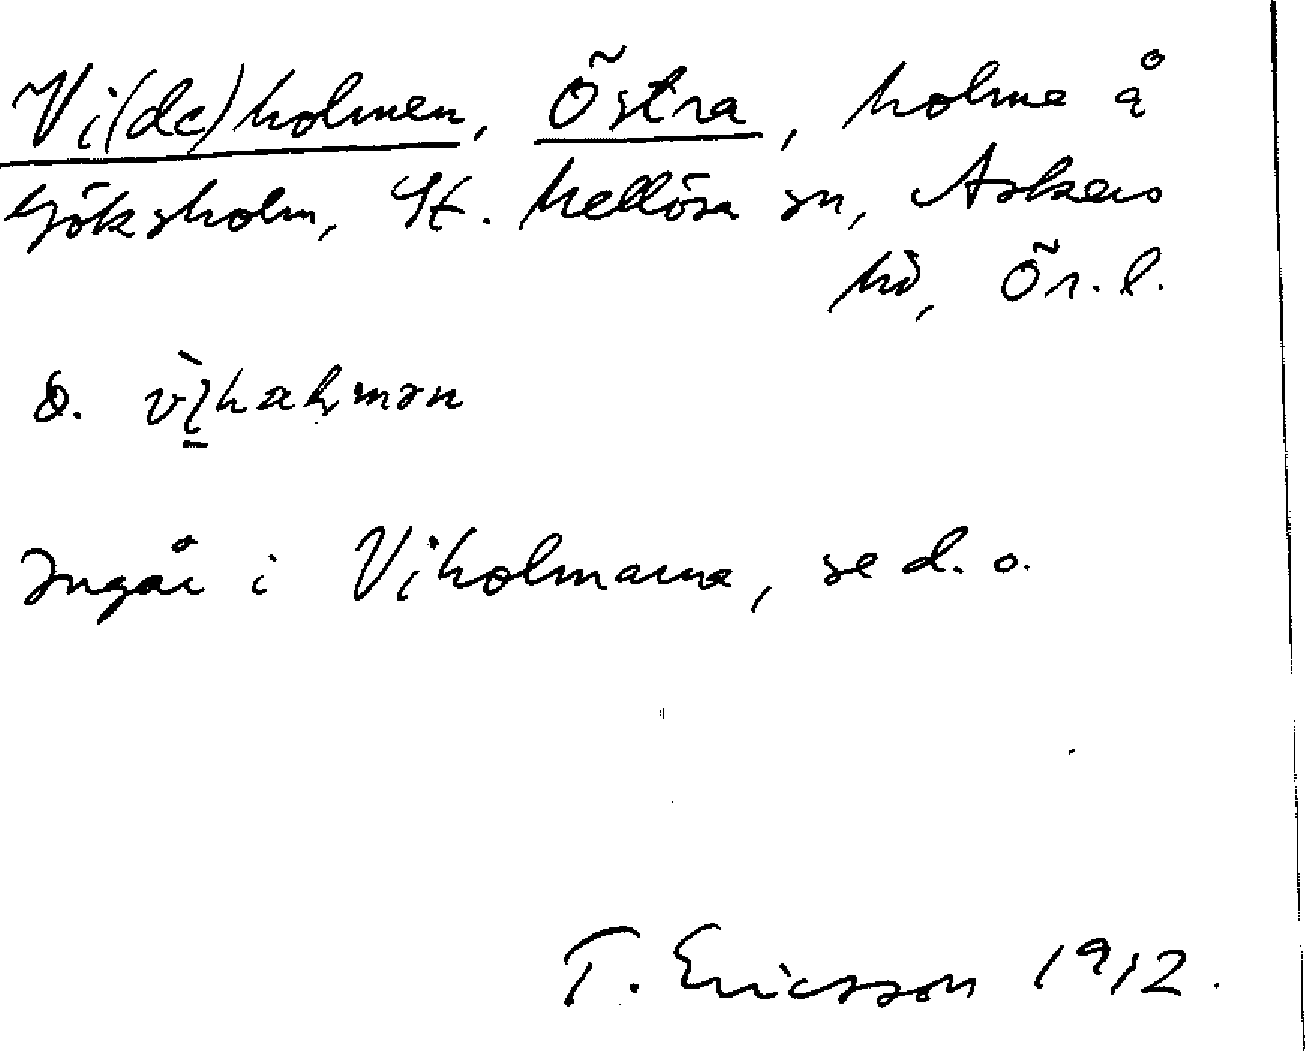 Vi(de)holmen, Östra, holme å
Göksholm, St. Mellösa sn, Askers
hd, Ör. l.
ö.
Ingår i Viholmarna, se d. o.
T. Ericsson 1912.